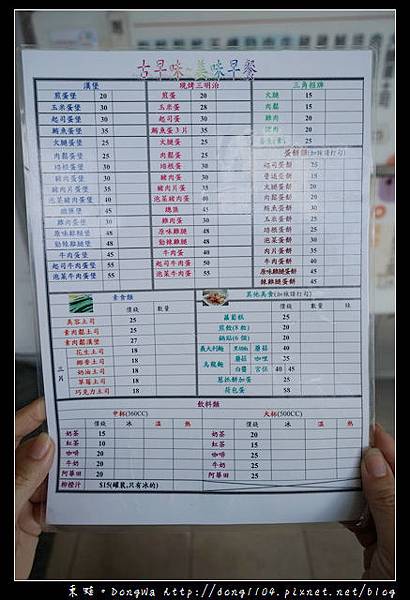 古早味~美味早餐
漢堡 現烤三明治 三角招牌
煎蛋堡 20 煎蛋 20 火腿 15
玉米蛋堡 30 玉米蛋 28 肉鬆 15
起司蛋堡 30 起司蛋 30 雞肉
鮪魚蛋堡 35 鮪魚蛋3片 35
火腿蛋堡 25 火腿蛋 25
肉鬆蛋堡 25 肉鬆蛋 25 蛋餅類(加辣請打勾)
培根蛋堡 30 培根蛋 30 起司蛋餅 25
豬肉蛋堡 30 豬肉蛋 30
豬肉片蛋堡 35 豬肉片蛋 35 火腿蛋餅 25
泡菜豬肉蛋堡 40 泡菜豬肉蛋 40 肉鬆蛋餅 25
總匯堡 45 總匯 45 鮪魚蛋餅 30
雞肉蛋堡 30 雞肉蛋 30 玉米蛋餅 25
原味雞腿堡 48 原味雞腿 45 肉片蛋餅 30
勁辣雞腿堡 48 勁辣雞腿 45 泡菜蛋餅 30
牛肉蛋堡 45 牛肉蛋 40 牛肉蛋餅 40
起司牛肉蛋堡 55 起司牛肉蛋 50 原味雞腿蛋餅 45
泡菜牛肉蛋堡 55 泡菜牛肉蛋 50 辣雞腿蛋餅 45
素食類 其他美食(加辣請打勾)
價錢 數量 價錢 數量 辣
美容土司 25 蘿蔔糕 25
素肉鬆土司 25 煎餃(8粒) 20
素肉鬆漢堡 27 鍋貼(6個) 20
三片
花生土司 18 義大利麵 黑胡椒 蘑菇 40
椰香土司 18 烏龍麵 蘑菇 咖哩 35
奶油土司 18 白醬 宮保 40 45
草莓土司 18 蔥抓餅加蛋 25
巧克力土司 18 荷包蛋 58
飲料類
中杯(360CC) 大杯(500CC)
價錢 冰 溫 熱 價錢 冰 溫 熱
奶茶 15 奶茶 20
紅茶 10 紅茶 15
咖啡 20 咖啡 25
牛奶 20 牛奶 25
阿華田 20 阿華田 25
柳橙汁 $15(罐裝,只有冰的)
東娃。DongWa http://dong1104.pixnet.net/blog